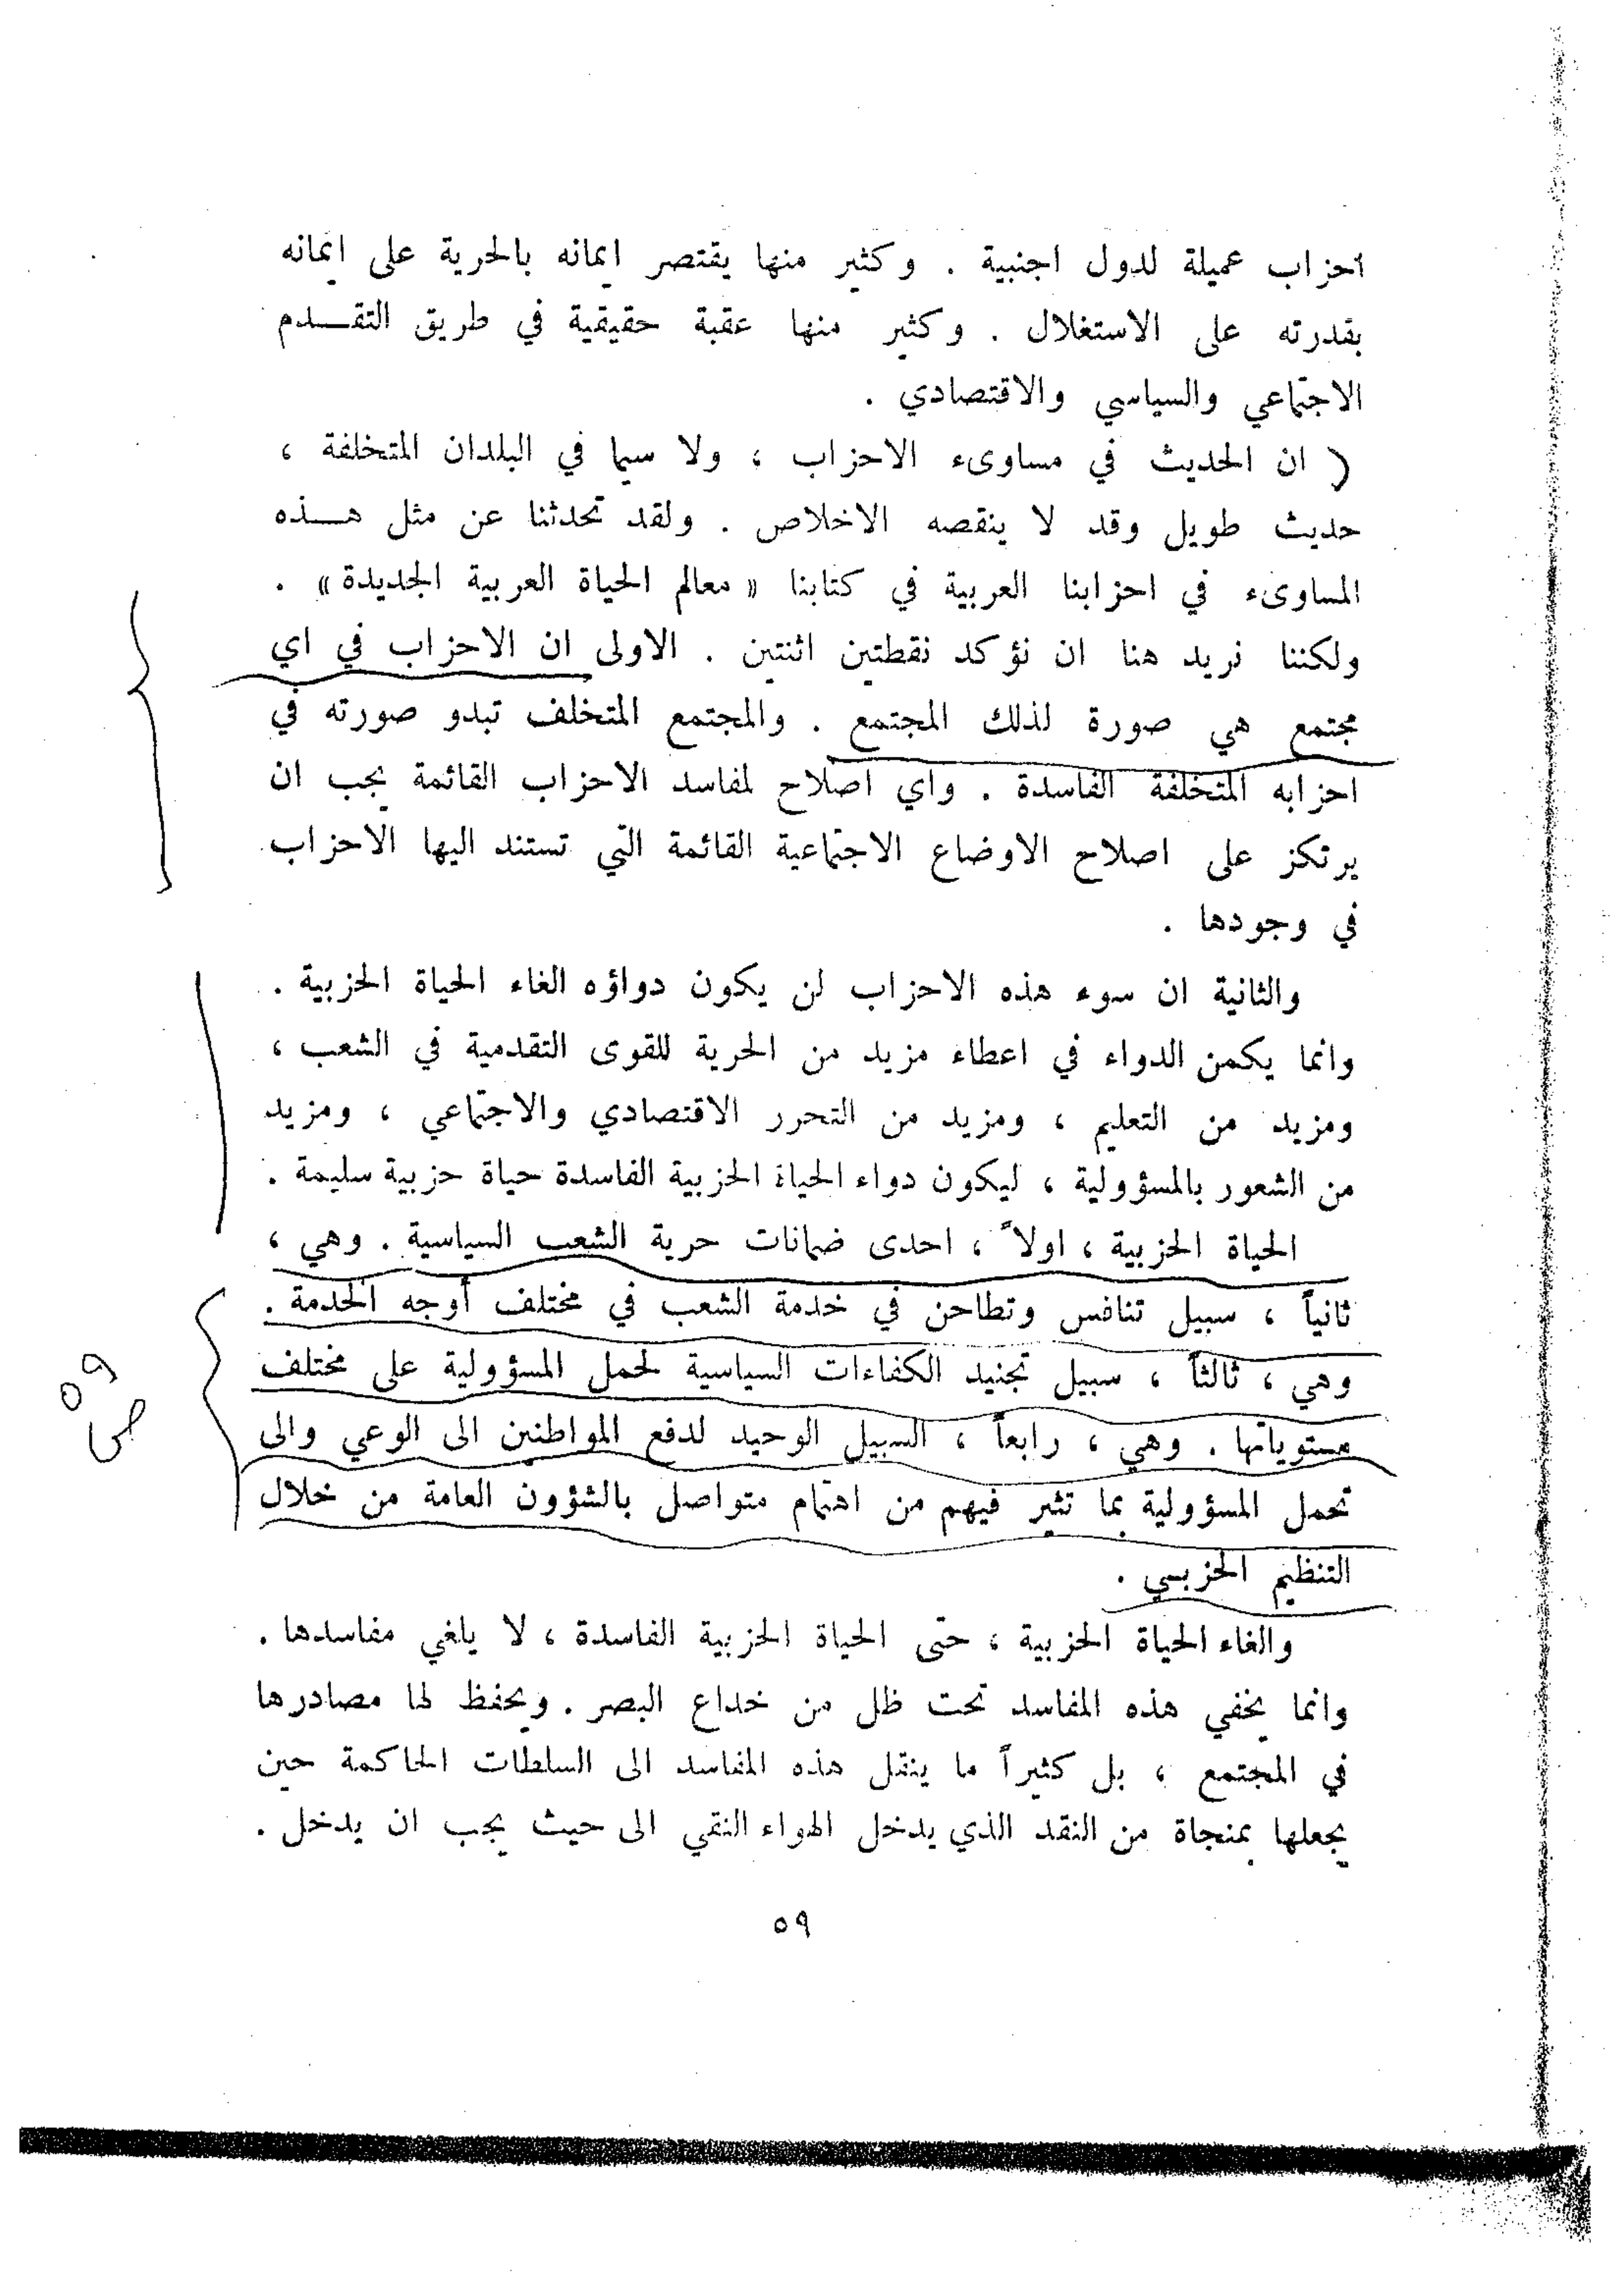 احزاب عميلة لدول اجنبية . وكثير منها يقتصر ايمانه بالحرية على ايمانه
بقدرته على الاستغلال . وكثير منها عقبة حقيقية في طريق التقـــدم
الاجتماعي والسياسي والاقتصادي .
( ان الحديث في مساوىء الاحزاب ، ولا سيما في البلدان المتخلفة ،
حديث طويل وقد لا ينقصه الاخلاص . ولقد تحدثنا عن مثل هـــذه
المساوىء في احزابنا العربية في كتابنا « معالم الحياة العربية الجديدة » .
ولكننا نريد هنا ان نؤكد نقطتين اثنتين . الاولى ان الاحزاب في اي
مجتمع هي صورة لذلك المجتمع . والمجتمع المتخلف تبدو صورته في
احزابه المتخلفة الفاسدة . واي اصلاح لمفاسد الاحزاب القائمة يجب ان
يرتكز على اصلاح الاوضاع الاجتماعية القائمة التي تستند اليها الاحزاب
في وجودها .
والثانية ان سوء هذه الاحزاب لن يكون دواؤه الغاء الحياة الحزبية .
وانما يكمن الدواء في اعطاء مزيد من الحرية للقوى التقدمية في الشعب ،
ومزيد من التعليم ، ومزيد من التحرر الاقتصادي والاجتماعي ، ومزيد
من الشعور بالمسؤولية ، ليكون دواء الحياة الحزبية الفاسدة حياة حزبية سليمة .
الحياة الحزبية ، اولاً ، احدى ضمانات حرية الشعب السياسية . وهي ،
ثانياً ، سبيل تنافس وتطاحن في خدمة الشعب في مختلف أوجه الخدمة .
وهي ، ثالثاً ، سبيل تجنيد الكفاءات السياسية لحمل المسؤولية على مختلف
مستوياتها . وهي ، رابعاً ، السبيل الوحيد لدفع المواطنين الى الوعي والى
تحمل المسؤولية بما تثير فيهم من اهتمام متواصل بالشؤون العامة من خلال
التنظيم الحزبي .
والغاء الحياة الحزبية ، حتى الحياة الحزبية الفاسدة ، لا يلغي مفاسدها .
وانما يخفي هذه المفاسد تحت ظل من خداع البصر . ويحفظ لها مصادرها
في المجتمع ، بل كثيراً ما ينقل هذه المفاسد الى السلطات الحاكمة حين
يجعلها بمنجاة من النقد الذي يدخل الهواء النقي الى حيث يجب ان يدخل .
٥٩
ص ٥٩